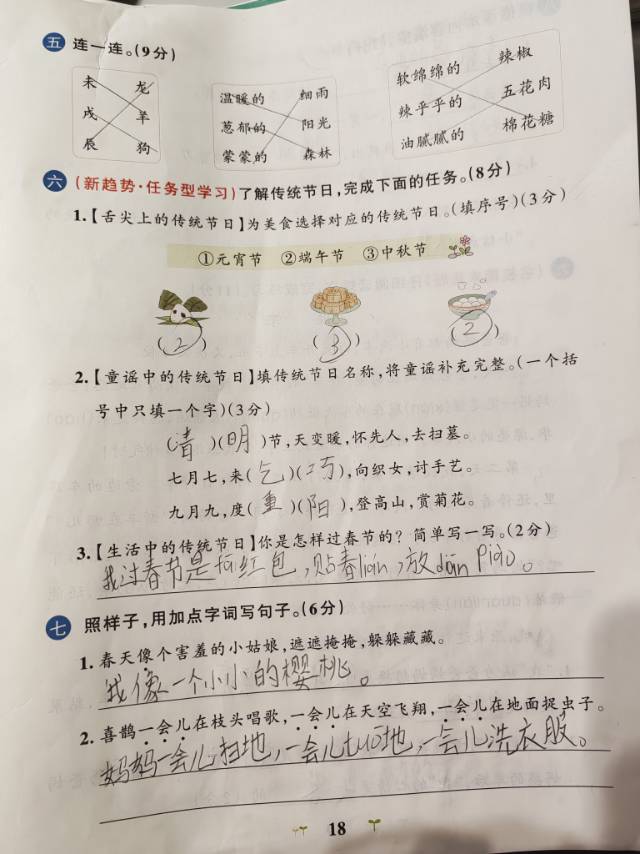 五 连一连。(9分)
未 龙
戌 羊
辰 狗
温暖的 细雨
葱郁的 阳光
蒙蒙的 森林
软绵绵的 辣椒
辣乎乎的 五花肉
油腻腻的 棉花糖
六 (新趋势·任务型学习)了解传统节日,完成下面的任务。(8分)
1.【舌尖上的传统节日】为美食选择对应的传统节日。(填序号)(3分)
①元宵节 ②端午节 ③中秋节
(2) (3) (2)
2.【童谣中的传统节日】填传统节日名称,将童谣补充完整。(一个括
号中只填一个字)(3分)
(清)(明)节,天变暖,怀先人,去扫墓。
七月七,来(乞)(巧),向织女,讨手艺。
九月九,度(重)(阳),登高山,赏菊花。
3.【生活中的传统节日】你是怎样过春节的?简单写一写。(2分)
我过春节是 红包,贴春lián,放 piào。
七 照样子,用加点字词写句子。(6分)
1.春天像个害羞的小姑娘,遮遮掩掩,躲躲藏藏。
我像一个小小的樱桃。
2.喜鹊一会儿在枝头唱歌,一会儿在天空飞翔,一会儿在地面捉虫子。
妈妈一会儿扫地,一会儿 地,一会儿洗衣服。
18